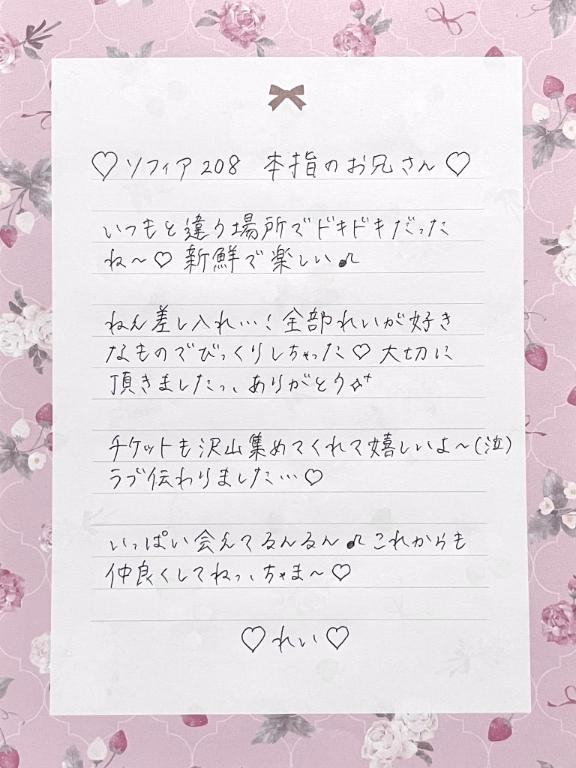 ♡ソフィア208 本指のお兄さん♡
いつもと違う場所でドキドキだった
ね〜♡新鮮で楽しい♪
ねん差し入れ…！全部れいが好き
なものでびっくりしちゃった♡大切に
頂きましたっ、ありがとう☆⁺
チケットも沢山集めてくれて嬉しいよ〜(泣)
ラブ伝わりました…♡
いっぱい会えてるんるん♪これからも
仲良くしてねっ、ちゅま〜♡
♡れい♡